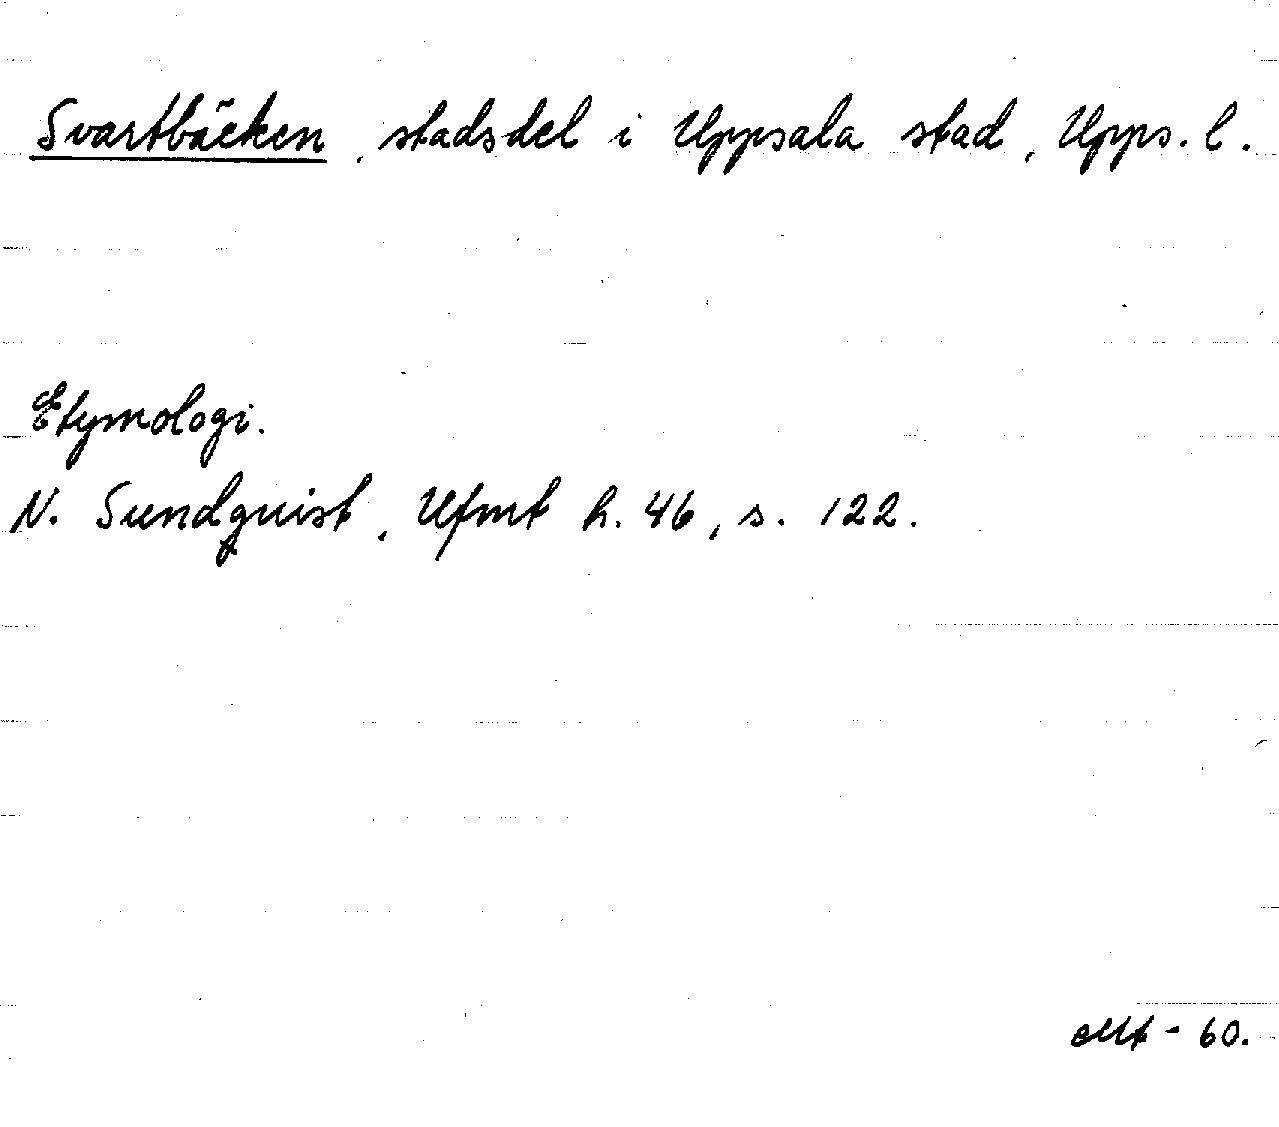 Svartbäcken, stadsdel i Uppsala stad, Upps. l.
Etymologi.
N. Sundquist, Ufmt h. 46, s. 122.
- 60.